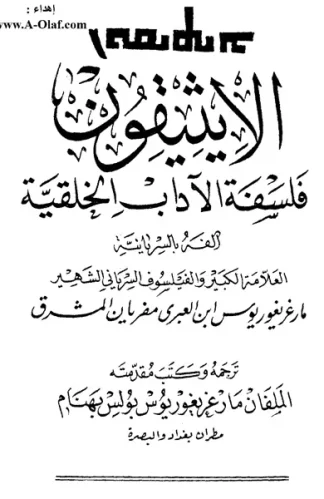 إهداء :
www.A-Olaf.com
الإيثيقون
فلسفة الآداب الخلقية
ألفه بالسريانية
العلامة الكبير والفيلسوف السرياني الشهير
مار غريغوريوس ابن العبري مفريان المشرق
ترجمه وكتب مقدمته
الملفان مار غريغوريوس بولس بهنام
مطران بغداد والبصرة